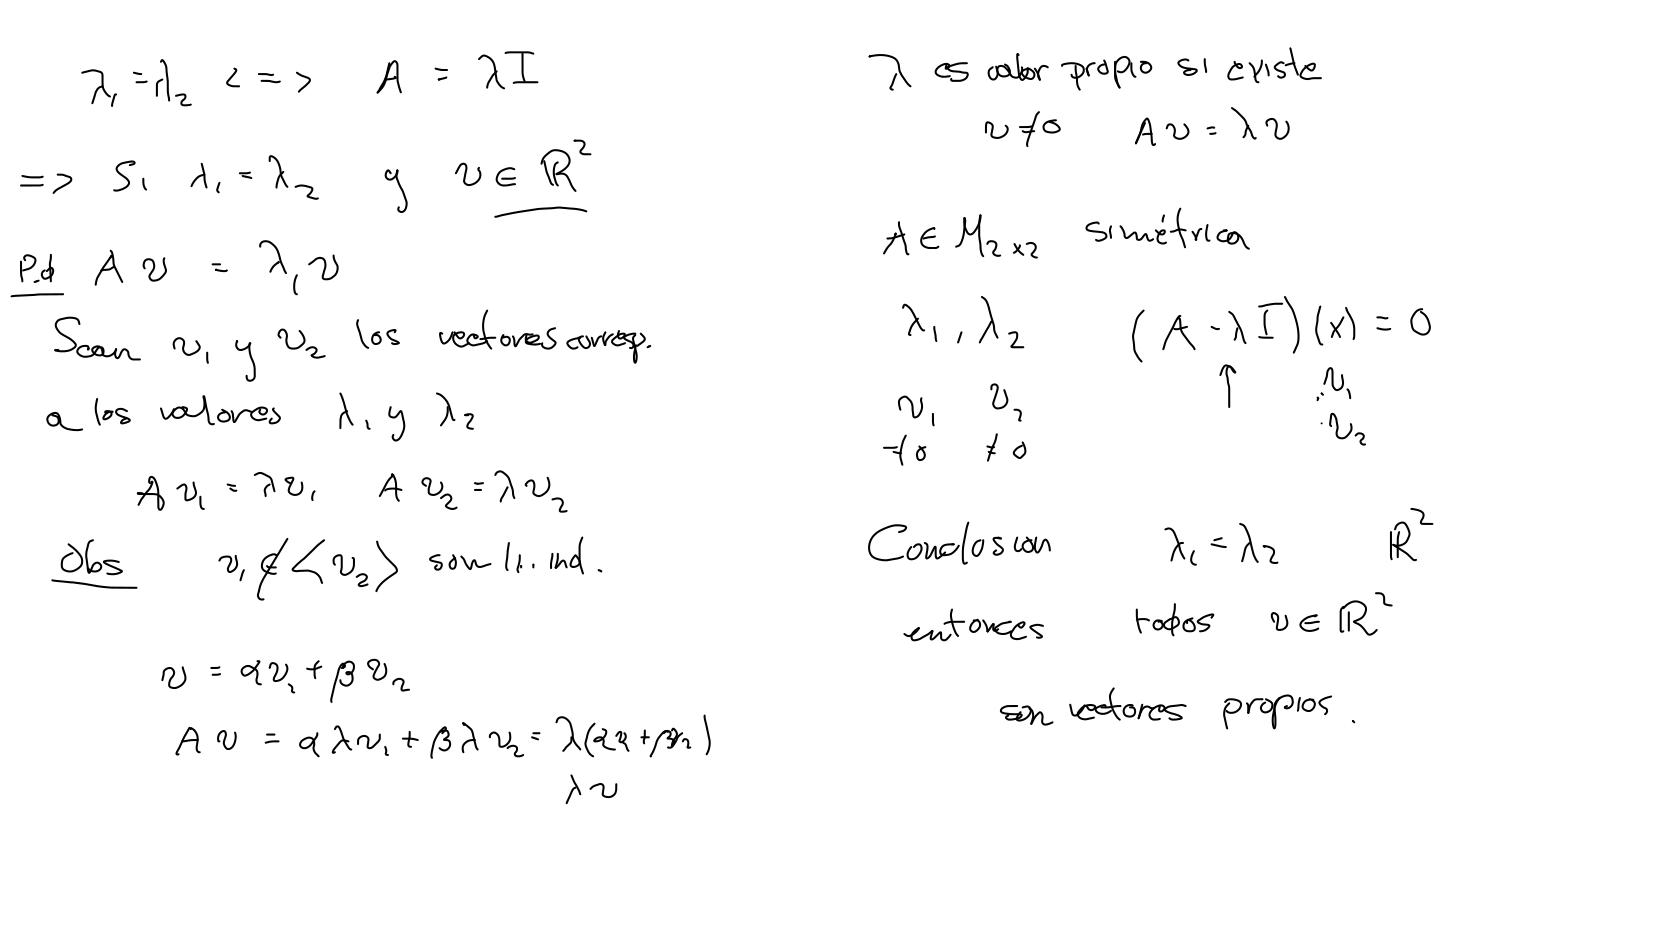 λ₁ = λ₂ <=> A = λI
=> Si λ₁ = λ₂ y v ∈ ℝ²
P.d A v = λ₁ v
Sean v₁ y v₂ los vectores corresp.
a los valores λ₁ y λ₂
A v₁ = λ v₁ A v₂ = λ v₂
Obs v₁ ∉ <v₂> son li. ind.
v = α v₁ + β v₂
A v = α λ v₁ + β λ v₂ = λ(α v₁ + β v₂)
λ v
λ es valor propio si existe
v ≠ 0 A v = λ v
A ∈ M₂ₓ₂ simétrica
λ₁, λ₂ (A - λ I)(x) = 0
v₁ v₂ ↑ v₁
≠ 0 ≠ 0 v₂
Conclosion λ₁ = λ₂ ℝ²
entonces todos v ∈ ℝ²
son vectores propios.